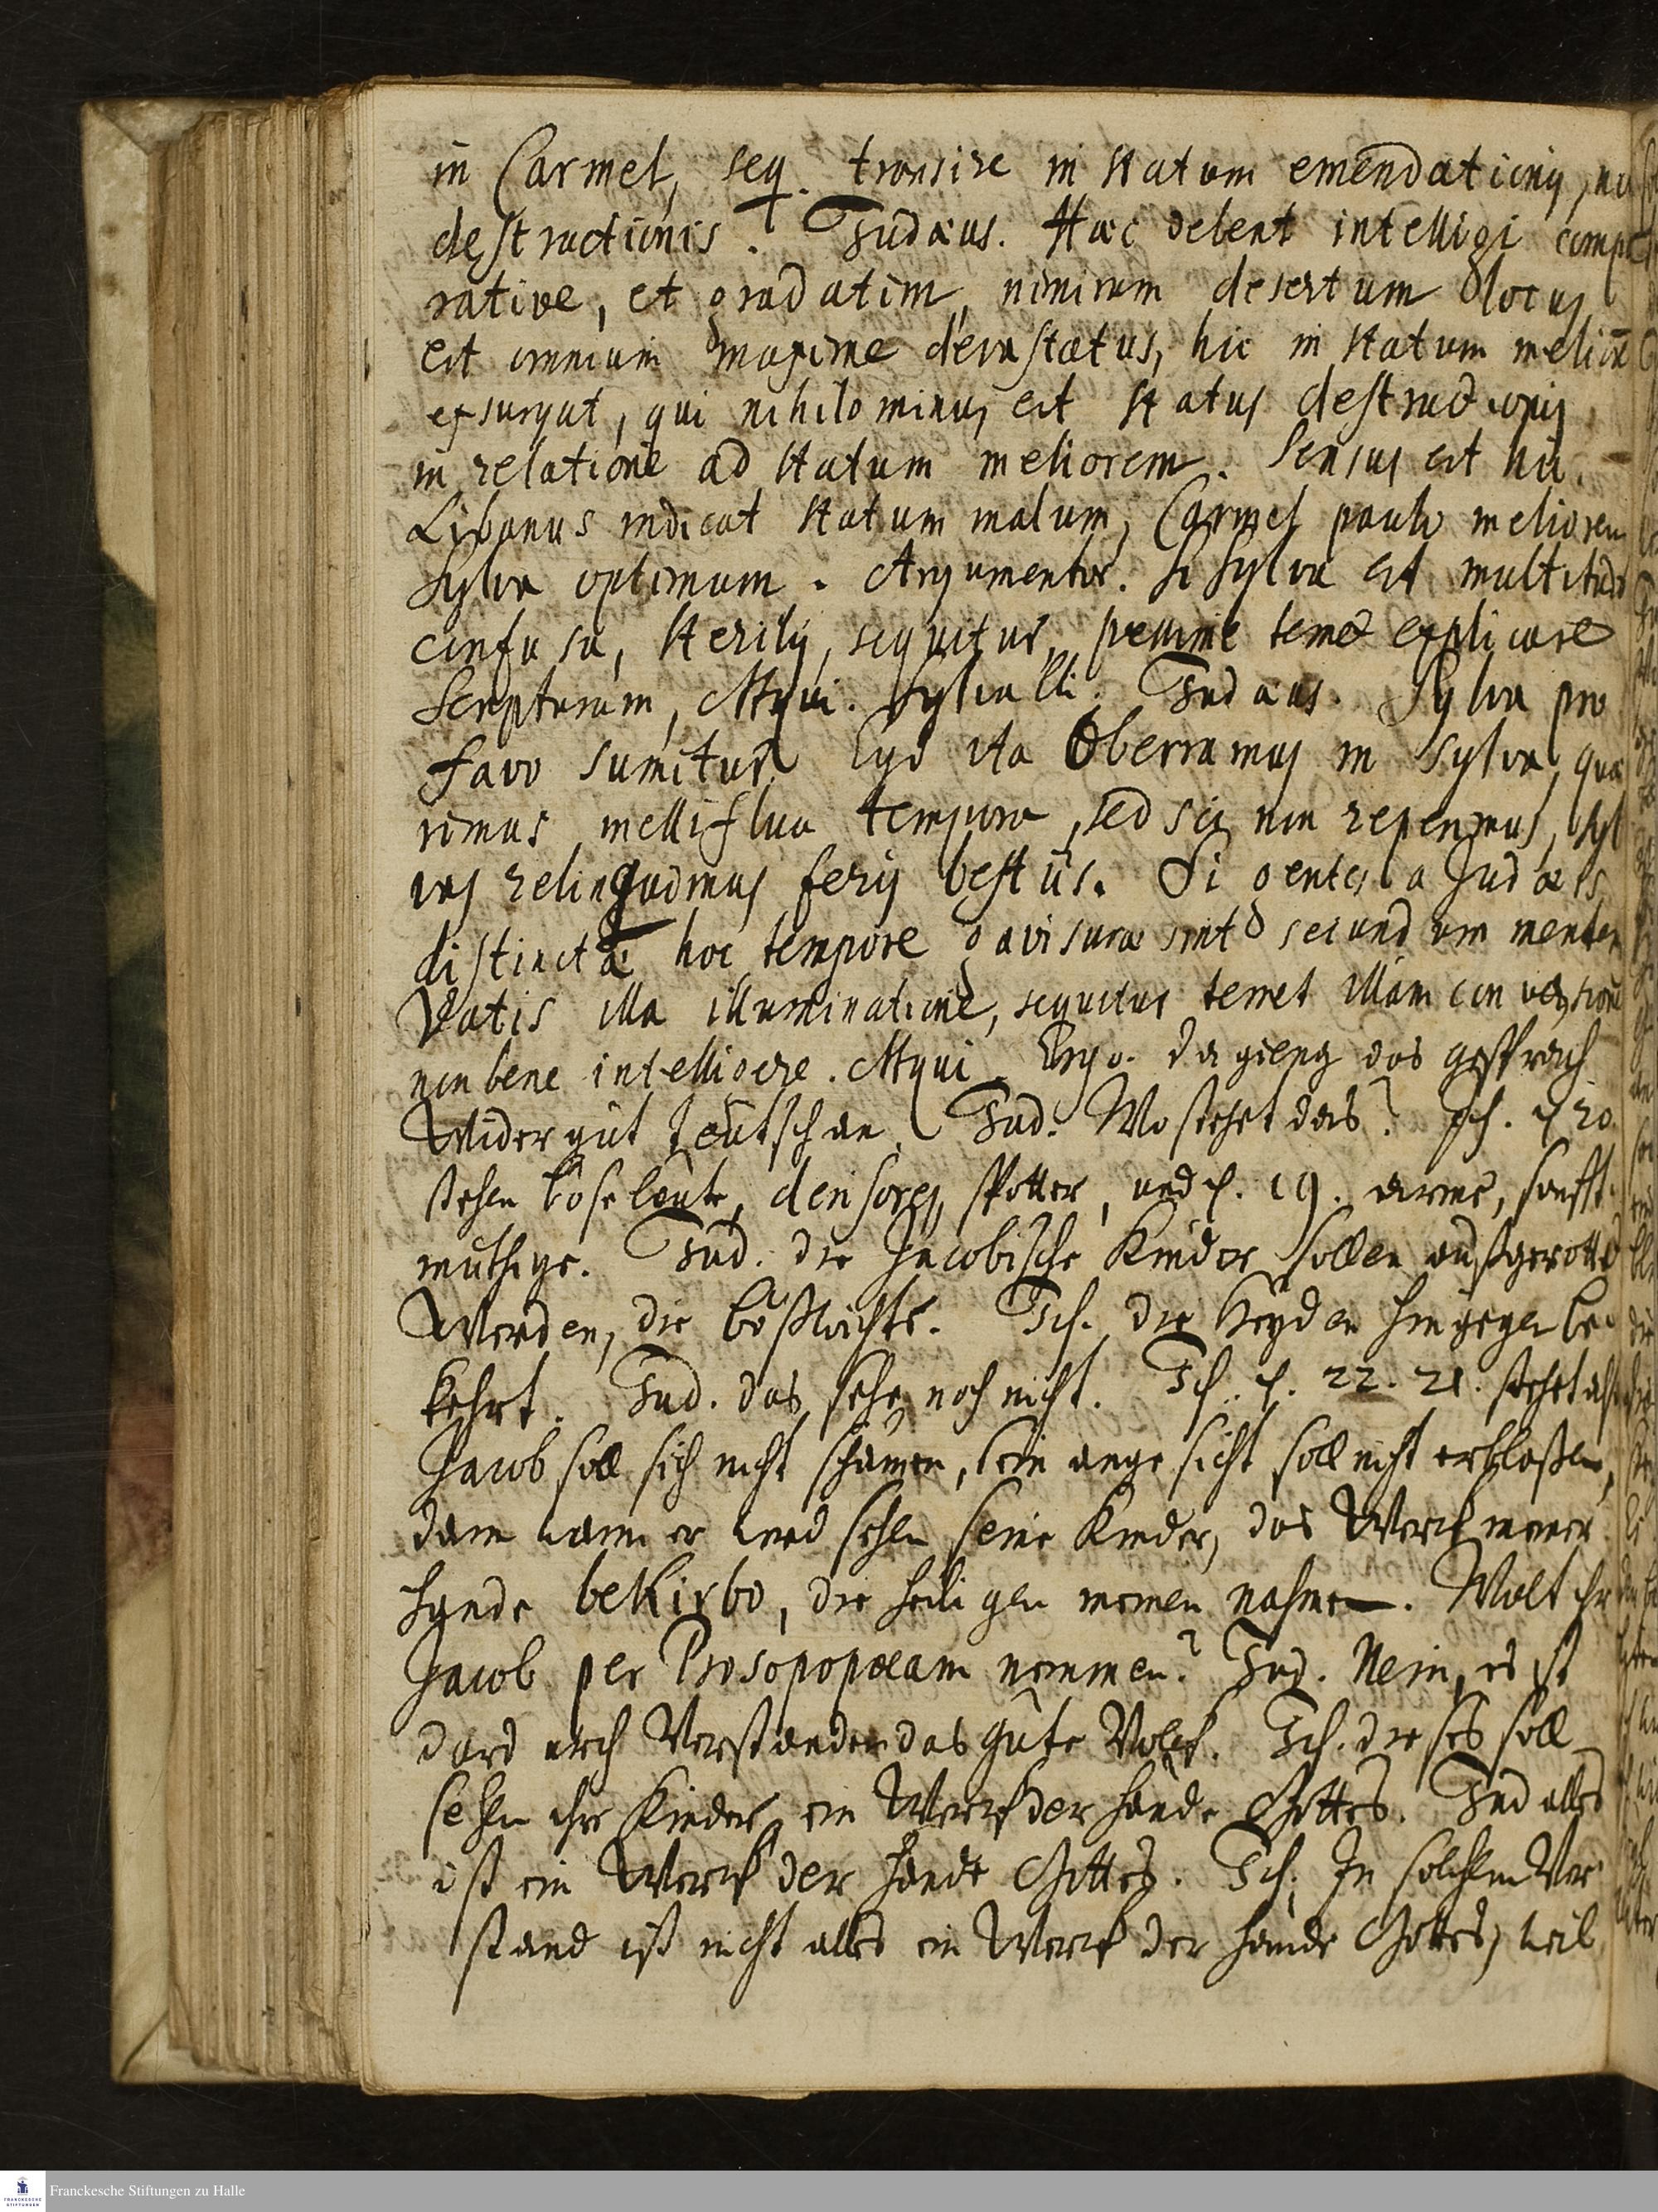 in Carmel, seq. transire in statum emendationis, non
destructionis. Judæus. Hæc debent intelligi compa
rative, et gradatim, nimirum desertum locus
est omnium maxime devastatus, hic in statum melior
exsurgat, qui nihilominus est status destructionis
in relatione ad statum meliorem. Sensus est hic.
Libanus indicat statum malum, Carmel paulo meliorem
Sylva optimum. Argumentor. Si Sylva est multitudo
confusa, sterilis, sequitur, pessime temet explicare
Scripturam, Atqui. Sylva Judæus. Sylva pro
favo sumitur. Ego ita Oberramus in Sylva, quæ
rimus melliflua tempora, sed sic non reperimus, syl
vas relinquamus feris bestiis. Si gentes a Judæis
distinctæ hoc tempore gavisuræ sint secundum mentem
Vatis illa illuminatione, sequitur temet illam conversione
non bene intelligere. Atqui Ergo. da gieng das gesprach
Wider gut teutsch an. Jud. Wo stehet das? Ich. 20.
stehen böse leute, spötter, und 19. arme, sanfft
müthige. Jud. die Jacobische Kinder sollen außgerottet
Werden, die Ich. die Heyden hingegen be
kehrt. Jud. das sehe noch nicht. Ich. 22. 21. stehet
Jacob soll sich nicht schämen, sein angesicht soll nicht erblaßen,
dann wann er wird sehen seine Kinder, das Werck meiner
Hände beKirbo, die heiligen meinen nahmen. Wolt ihr
Jacob per Prosopopœiam nemmen? Jud. Nein, es ist
dardurch Verstanden das gute Volck. Ich. dieses soll
sehen ihre Kinder, ein Werck der Hände Gottes. Jud alles
ist ein Werck der Hände Gottes. Ich. In solchem Ver
stand ist nicht alles ein Werck der Hände Gottes, weil
Franckesche Stiftungen zu Halle
FRANCKESCHE STIFTUNGEN